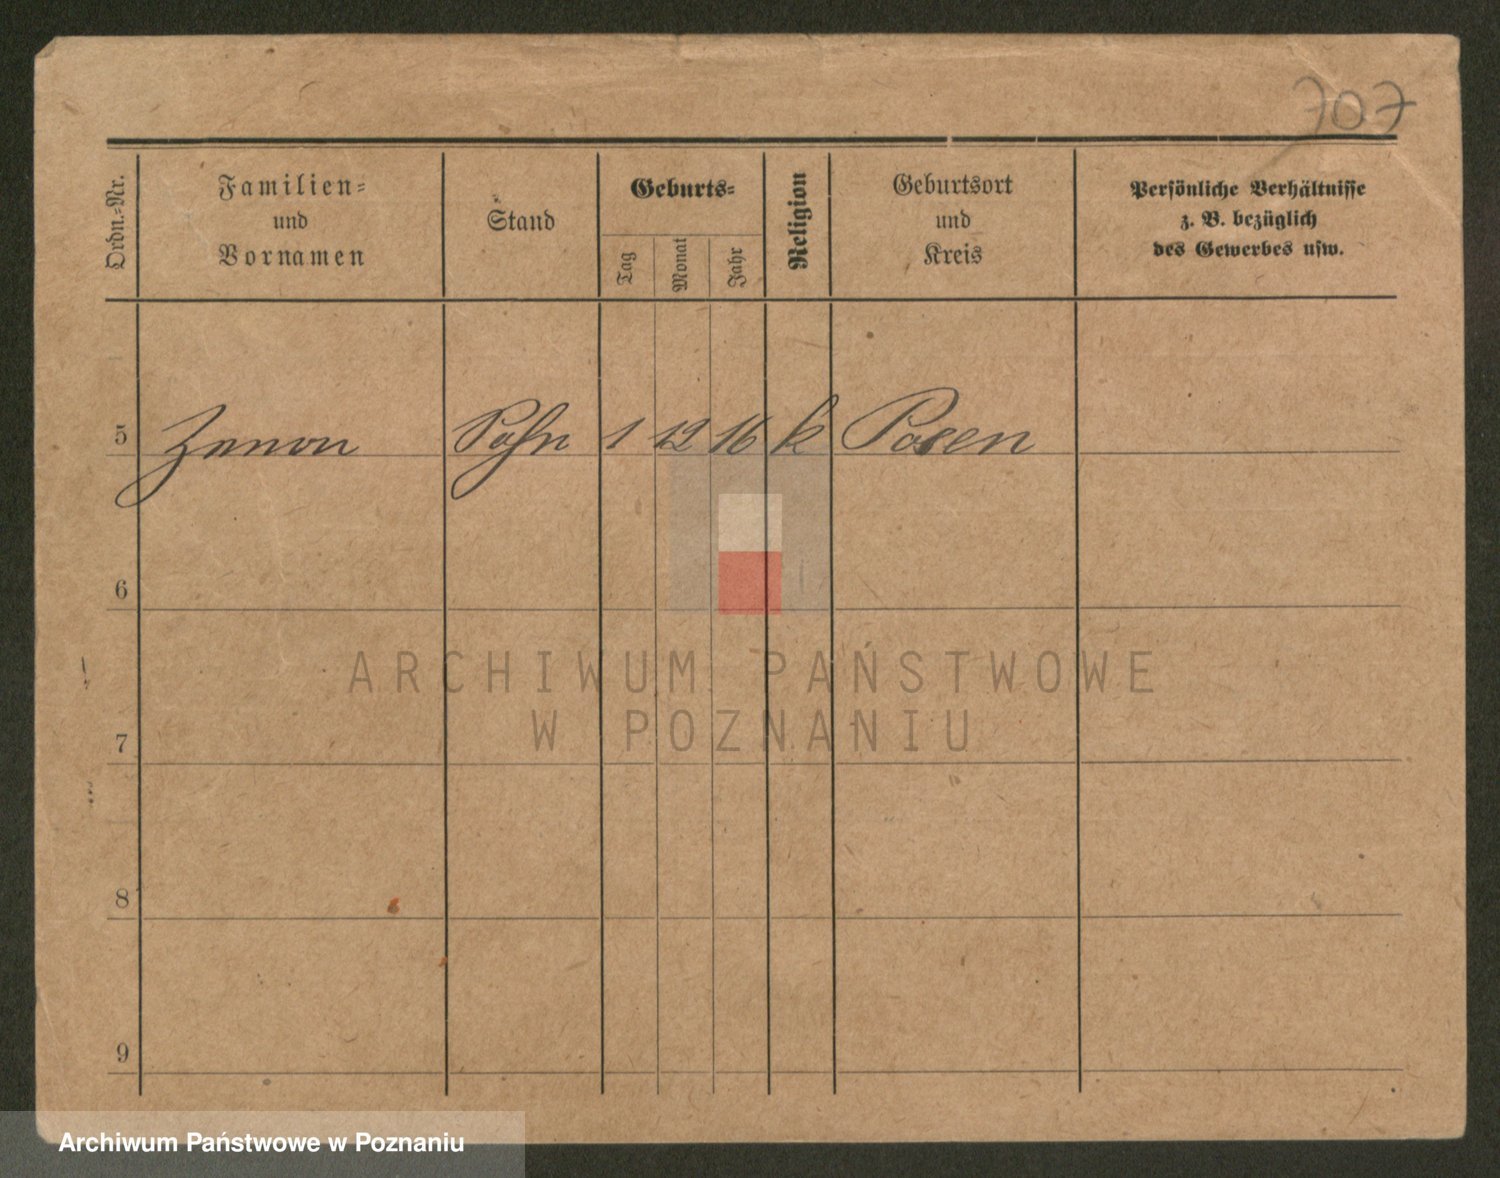 707
Ordn.-Nr. Familien- und Vornamen Stand Geburts- Tag Monat Jahr Religion Geburtsort und Kreis Persönliche Verhältnisse z. B. bezüglich des Gewerbes usw.
5 Zenon Sohn 1 12 16 k Posen
6
ARCHIWUM PAŃSTWOWE
W POZNANIU
7
8
9
Archiwum Państwowe w Poznaniu